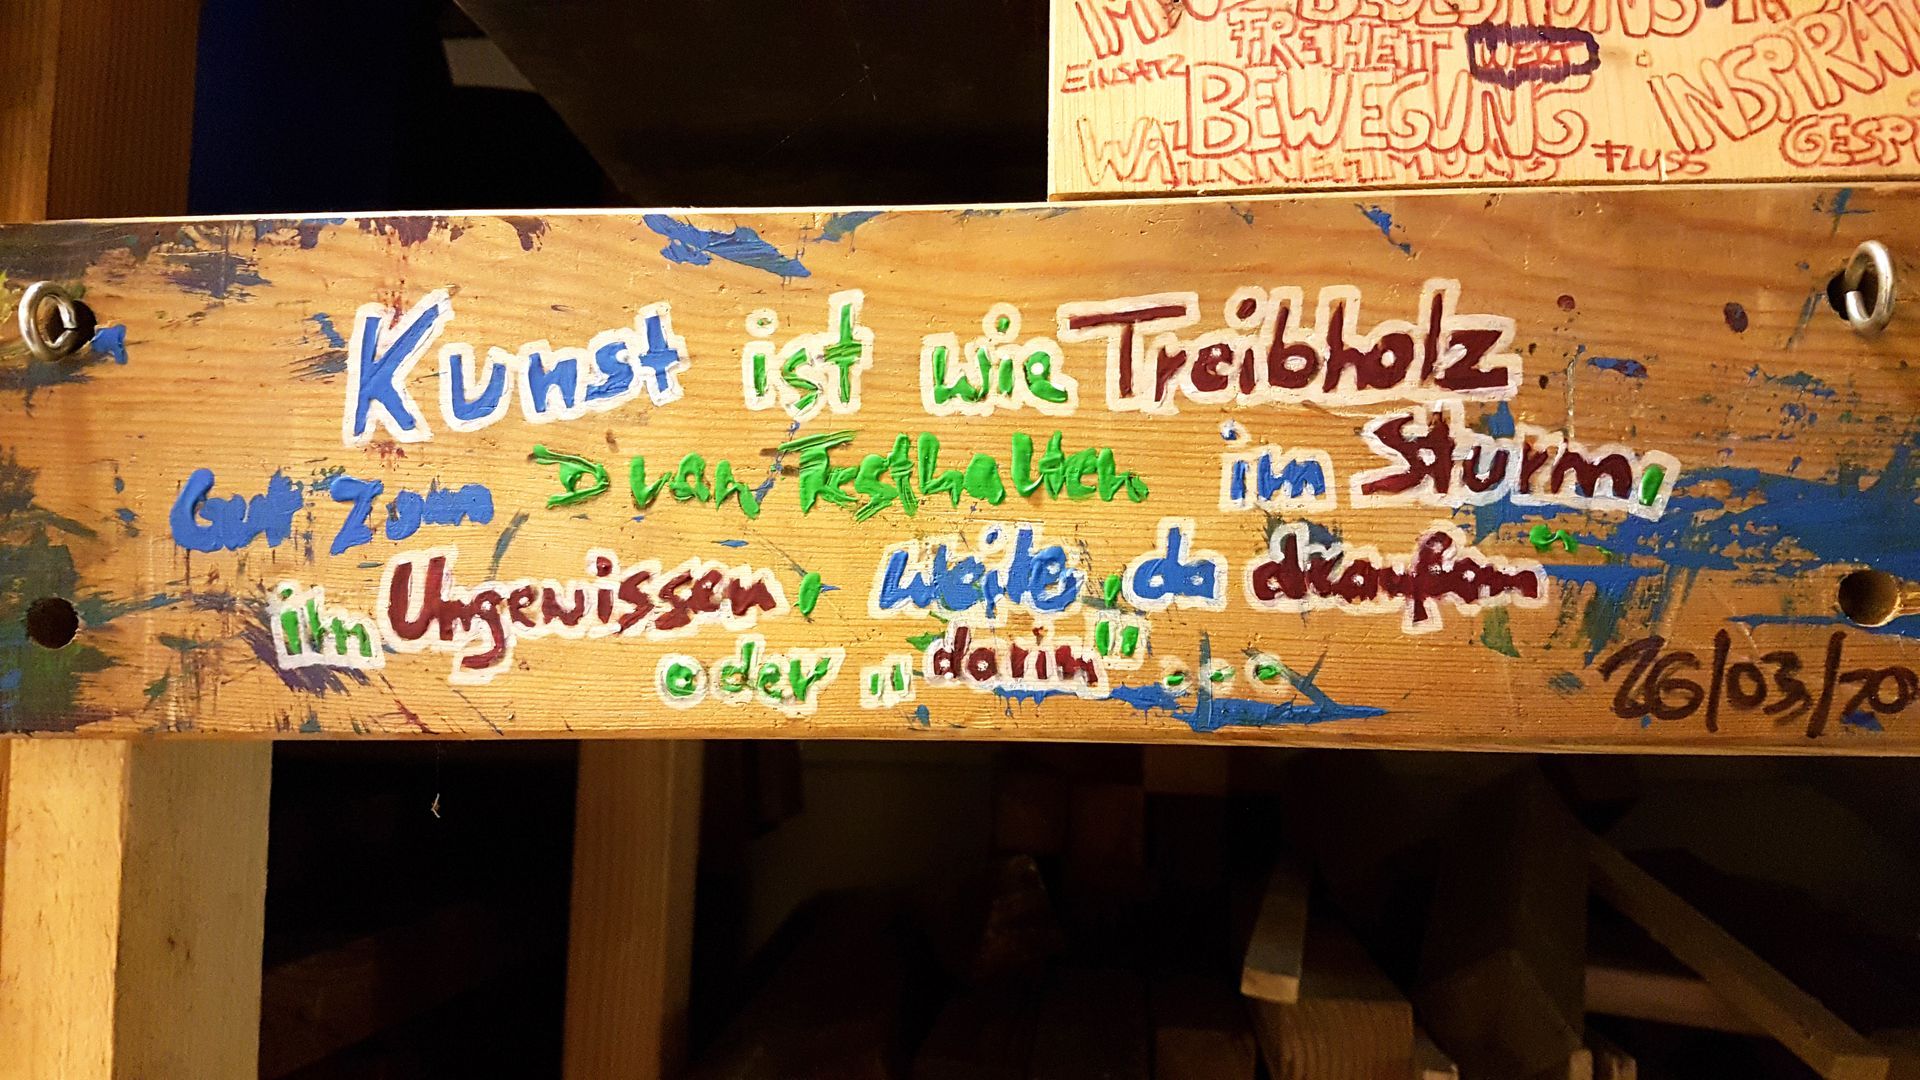 FREIHEIT WELT
EINSATZ BEWEGUNG INSPIRAT
WAHRNEHMUNG FLUSS GESP
Kunst ist wie Treibholz
Gut zum Dran Festhalten im Sturm,
im Ungewissen, weite, da draußen"
oder "darin" ...
26/03/20